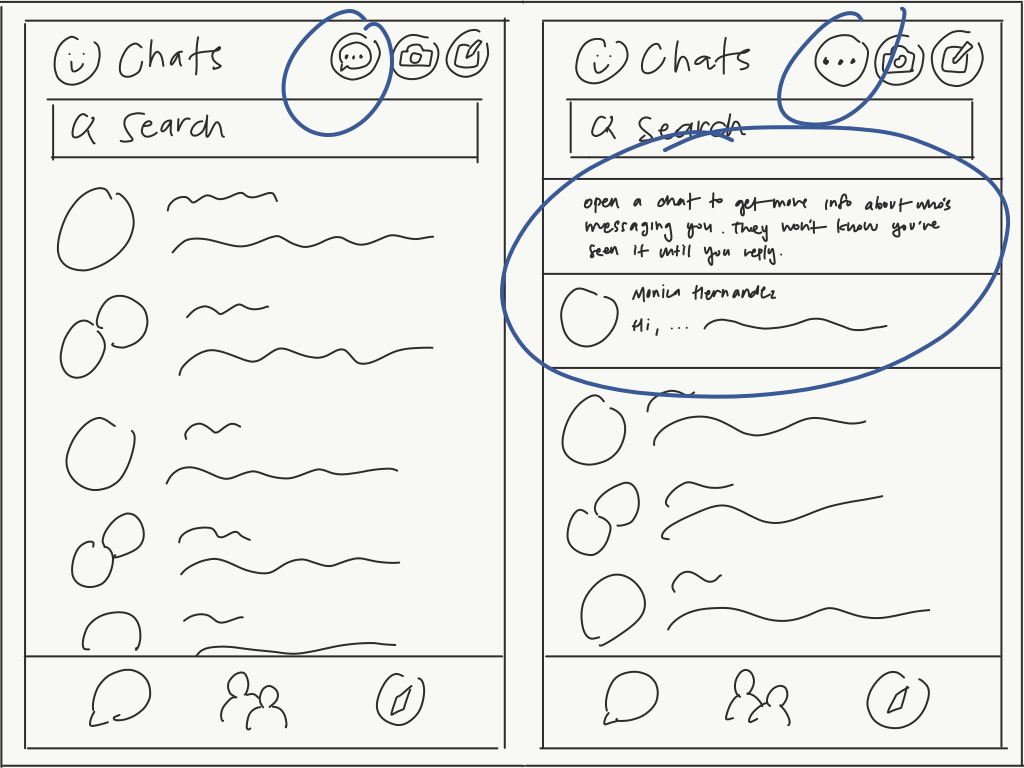 Chats
Search
Chats
Search
open a chat to get more info about who's
messaging you. They won't know you've
seen it until you reply.
Monica Hernandez
Hi, ...